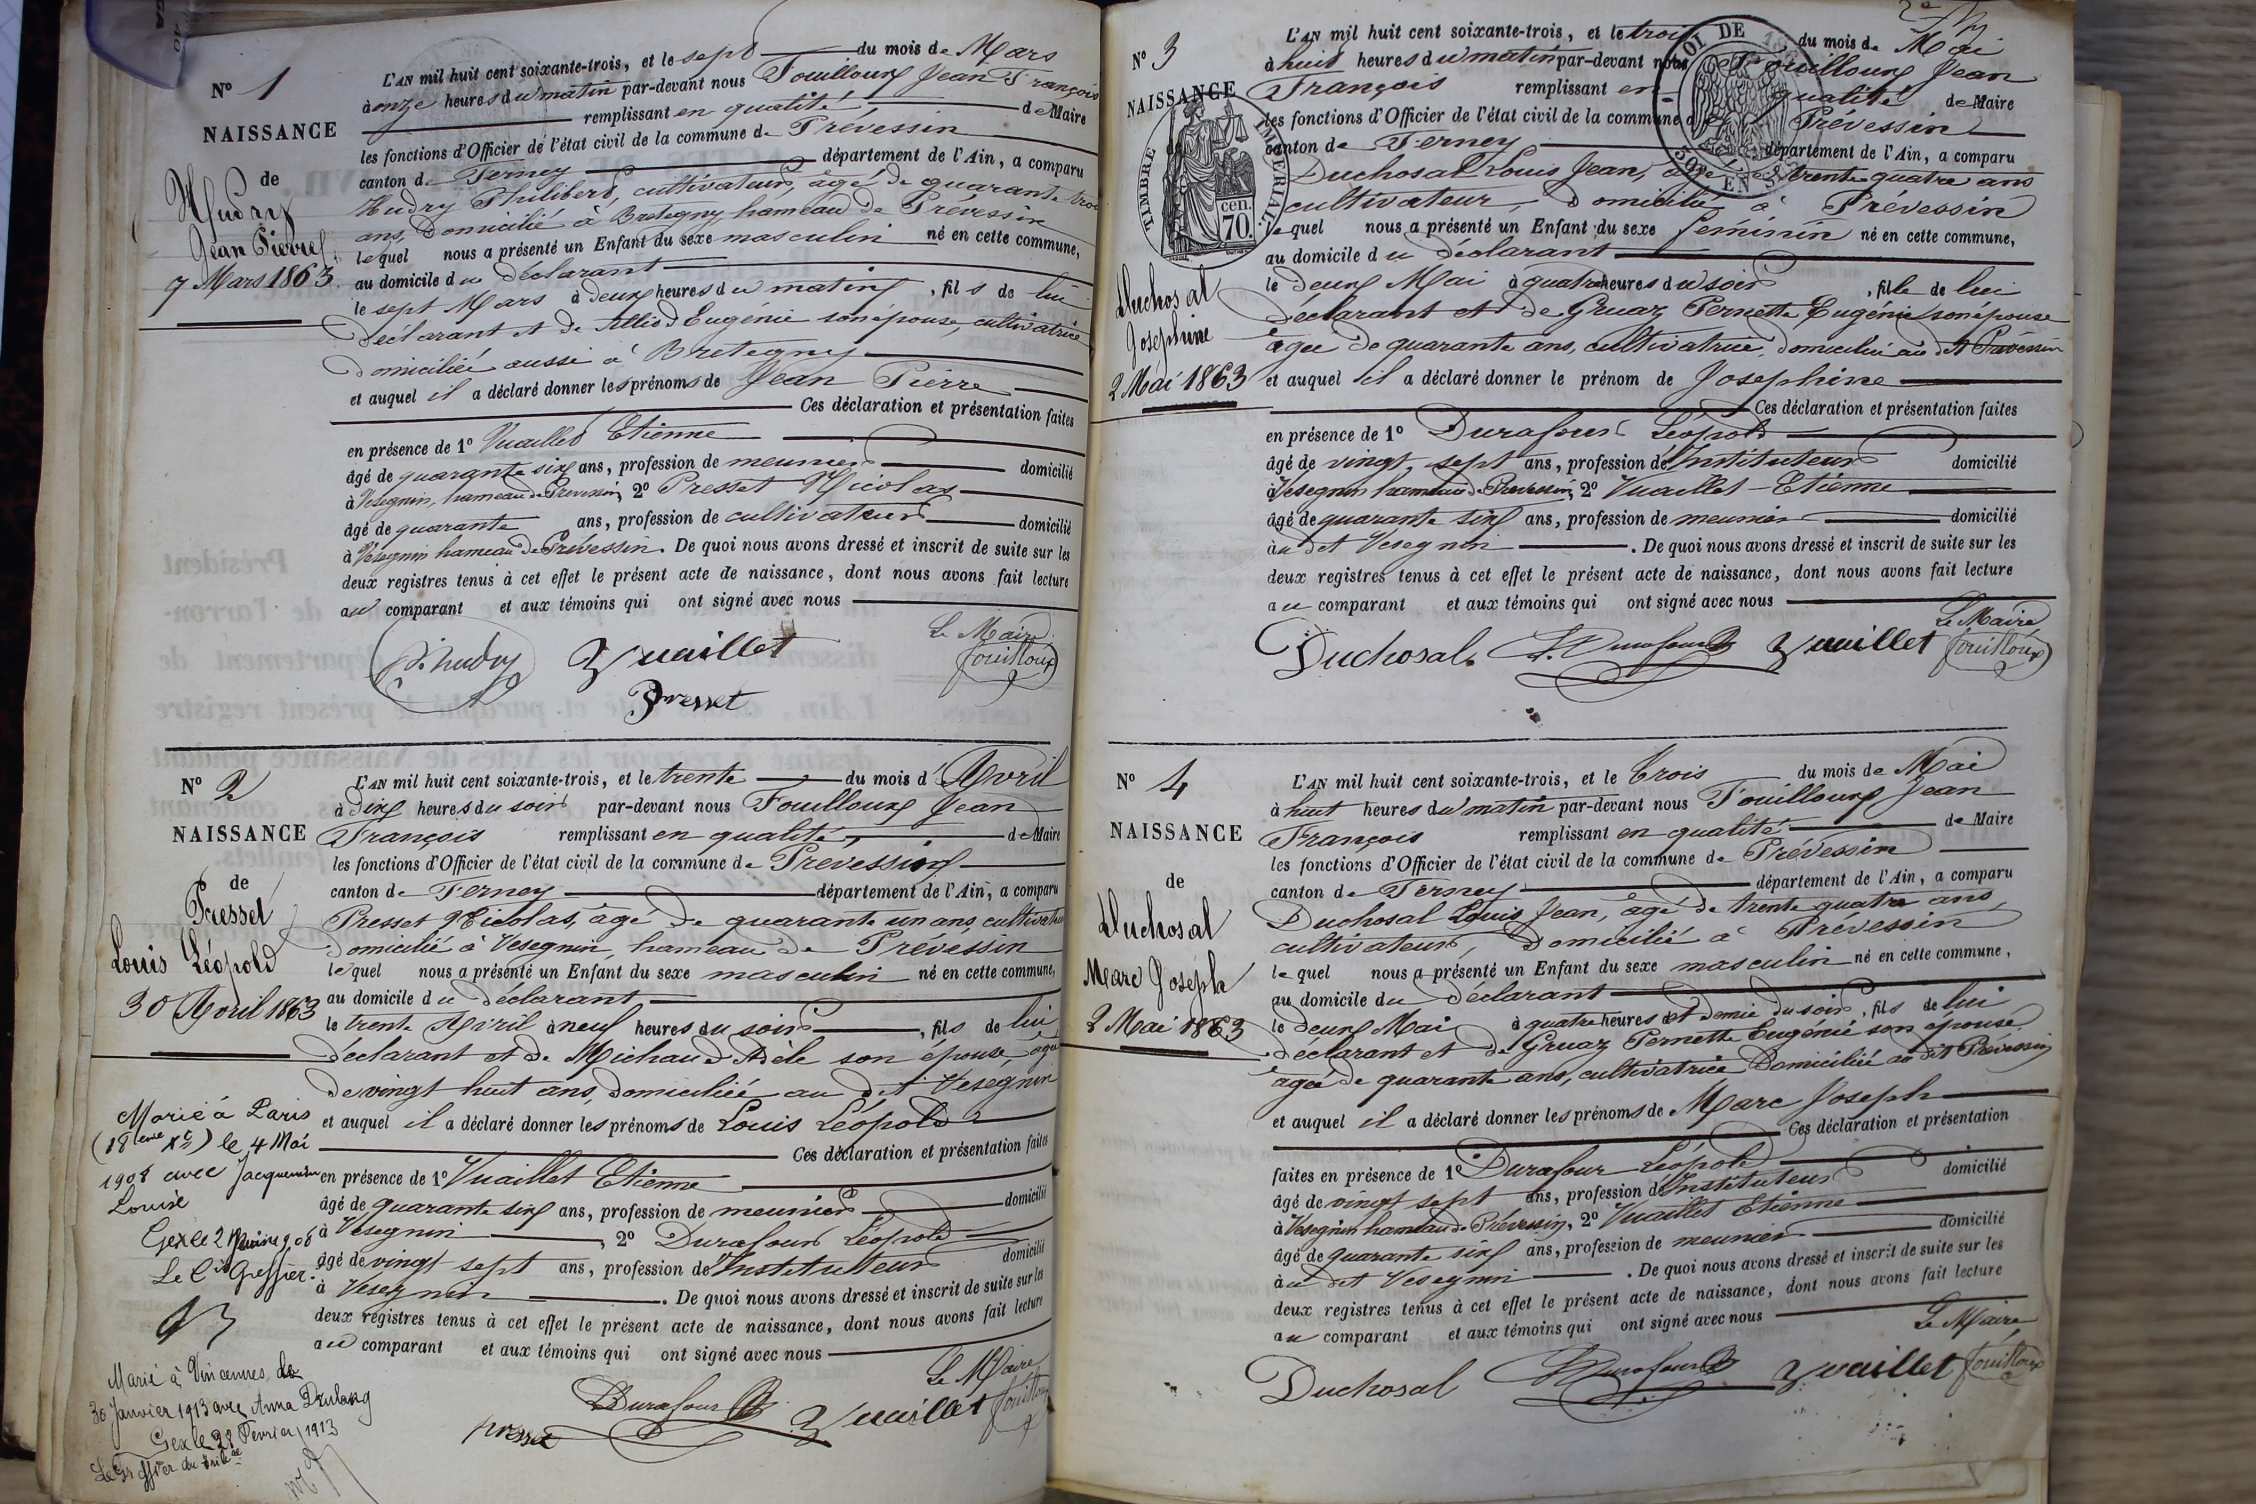 N° 1
NAISSANCE
de
Hudry
Jean Pierre
7 Mars 1863
L'AN mil huit cent soixante-trois, et le sept du mois de Mars
à onze heures du matin par-devant nous Fouilloux Jean François
remplissant en qualité de Maire
les fonctions d'Officier de l'état civil de la commune de Prévessin
canton de Ferney département de l'Ain, a comparu
Hudry Philibert, cultivateur, âgé de quarante trois
ans, domicilié à Bretegny hameau de Prévessin
lequel nous a présenté un Enfant du sexe masculin né en cette commune,
au domicile du déclarant
le sept Mars à deux heures du matin, fils de lui
déclarant et de Eugénie son épouse, cultivatrice
domiciliée aussi à Bretegny
et auquel il a déclaré donner les prénoms de Jean Pierre
Ces déclaration et présentation faites
en présence de 1° Vuaillet Etienne
âgé de quarante six ans, profession de meunier domicilié
à Vesegnin, hameau de Prévessin, 2° Presset Nicolas
âgé de quarante ans, profession de cultivateur domicilié
à Vesegnin hameau de Prévessin. De quoi nous avons dressé et inscrit de suite sur les
deux registres tenus à cet effet le présent acte de naissance, dont nous avons fait lecture
au comparant et aux témoins qui ont signé avec nous
Le Maire
P. hudry Vuaillet Fouilloux
Presset
N° 2
NAISSANCE
de
Presset
Louis Léopold
30 Avril 1863
L'AN mil huit cent soixante-trois, et le trente du mois d'Avril
à dix heures du soir par-devant nous Fouilloux Jean
François remplissant en qualité de Maire
les fonctions d'Officier de l'état civil de la commune de Prevessin
canton de Ferney département de l'Ain, a comparu
Presset Nicolas, âgé de quarante un ans, cultivateur
domicilié à Vesegnin, hameau de Prévessin
lequel nous a présenté un Enfant du sexe masculin né en cette commune,
au domicile du déclarant
le trente Avril à neuf heures du soir, fils de lui
déclarant et de Michaud Adèle son épouse, âgée
de vingt huit ans, domiciliée au dit Vesegnin
et auquel il a déclaré donner les prénoms de Louis Léopold
Ces déclaration et présentation faites
en présence de 1° Vuaillet Etienne
âgé de quarante six ans, profession de meunier domicilié
à Vesegnin, 2° Durafour Léopold
âgé de vingt sept ans, profession de Instituteur domicilié
à Vesegnin. De quoi nous avons dressé et inscrit de suite sur les
deux registres tenus à cet effet le présent acte de naissance, dont nous avons fait lecture
au comparant et aux témoins qui ont signé avec nous
Le Maire
presset Durafour Vuaillet Fouilloux
Marié à Paris
(18eme) le 4 Mai
1908 avec Jacquemin
Louise
Gex le 2 Juin 1908
Le Cis Greffier
Marié à Vincennes, le
30 Janvier 1913 avec Anna
Gex le 28 Février 1913
Le Greffier du
N° 3
NAISSANCE
de
TIMBRE IMPERIAL
70 cen.
Duchosal
Josephine
2 Mai 1863
L'AN mil huit cent soixante-trois, et le trois du mois de Mai
à huit heures du matin par-devant nous Fouilloux Jean
François remplissant en qualité de Maire
les fonctions d'Officier de l'état civil de la commune de Prévessin
canton de Ferney département de l'Ain, a comparu
Duchosal Louis Jean, âgé de trente quatre ans
cultivateur, domicilié à Prévessin
lequel nous a présenté un Enfant du sexe féminin né en cette commune,
au domicile du déclarant
le deux Mai à quatre heures du soir, fille de lui
déclarant et de Gruaz Pernette Eugénie son épouse
âgée de quarante ans, cultivatrice, domiciliée au dit Prévessin
et auquel il a déclaré donner le prénom de Josephine
Ces déclaration et présentation faites
en présence de 1° Durafour Léopold
âgé de vingt sept ans, profession de Instituteur domicilié
à Vesegnin hameau de Prévessin, 2° Vuaillet Etienne
âgé de quarante six ans, profession de meunier domicilié
au dit Vesegnin. De quoi nous avons dressé et inscrit de suite sur les
deux registres tenus à cet effet le présent acte de naissance, dont nous avons fait lecture
au comparant et aux témoins qui ont signé avec nous
Le Maire
Duchosal Durafour Vuaillet Fouilloux
N° 4
NAISSANCE
de
Duchosal
Marc Joseph
2 Mai 1863
L'AN mil huit cent soixante-trois, et le trois du mois de Mai
à huit heures du matin par-devant nous Fouilloux Jean
François remplissant en qualité de Maire
les fonctions d'Officier de l'état civil de la commune de Prévessin
canton de Ferney département de l'Ain, a comparu
Duchosal Louis Jean, âgé de trente quatre ans,
cultivateur, domicilié à Prévessin
lequel nous a présenté un Enfant du sexe masculin né en cette commune,
au domicile du déclarant
le deux Mai à quatre heures et demie du soir, fils de lui
déclarant et de Gruaz Pernette Eugénie son épouse
âgée de quarante ans, cultivatrice domiciliée au dit Prévessin
et auquel il a déclaré donner les prénoms de Marc Joseph
Ces déclaration et présentation
faites en présence de 1° Durafour Léopold
âgé de vingt sept ans, profession de Instituteur domicilié
à Vesegnin hameau de Prévessin, 2° Vuaillet Etienne
âgé de quarante six ans, profession de meunier domicilié
au dit Vesegnin. De quoi nous avons dressé et inscrit de suite sur les
deux registres tenus à cet effet le présent acte de naissance, dont nous avons fait lecture
au comparant et aux témoins qui ont signé avec nous
Le Maire
Duchosal Durafour Vuaillet Fouilloux